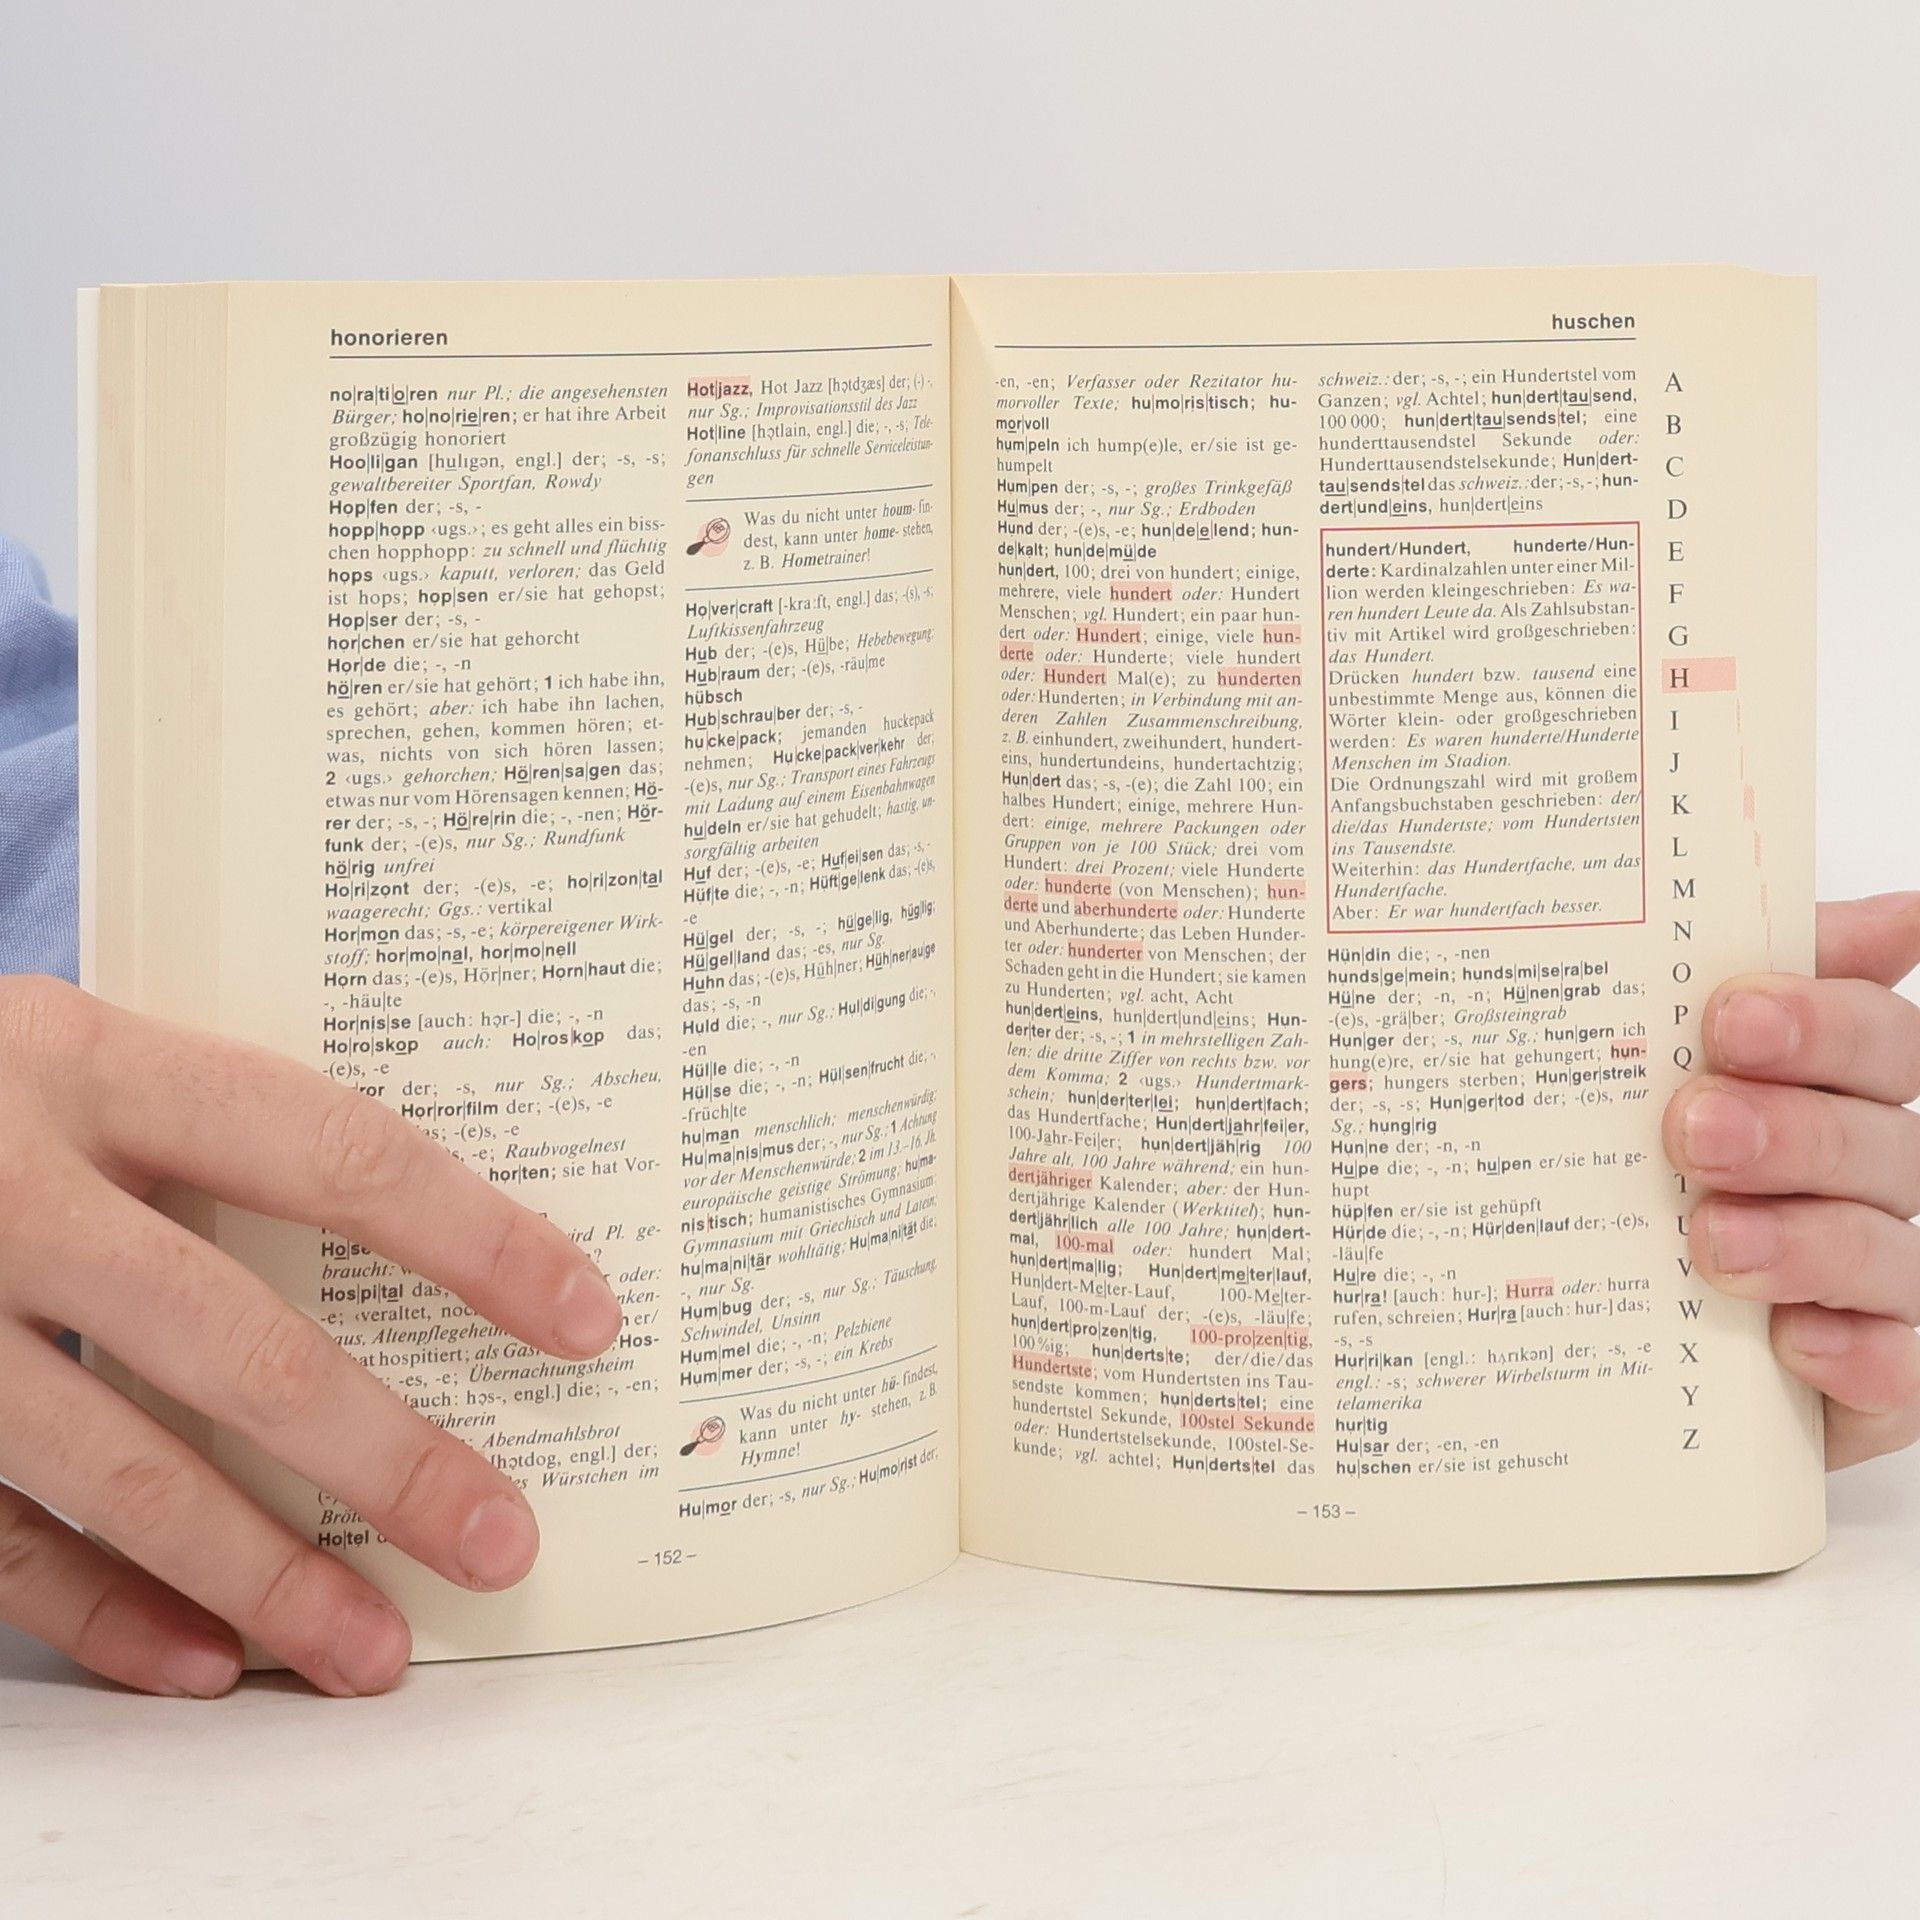 honorieren
no|ra|ti|o|ren nur Pl.; die angesehensten
Bürger; ho|no|rie|ren; er hat ihre Arbeit
großzügig honoriert
Hoo|li|gan [huligən, engl.] der; -s, -s;
gewaltbereiter Sportfan, Rowdy
Hop|fen der; -s, -
hopp|hopp ‹ugs.›; es geht alles ein biss-
chen hopphopp: zu schnell und flüchtig
hops ‹ugs.› kaputt, verloren; das Geld
ist hops; hop|sen er/sie hat gehopst;
Hop|ser der; -s, -
hor|chen er/sie hat gehorcht
Hor|de die; -, -n
hö|ren er/sie hat gehört; 1 ich habe ihn,
es gehört; aber: ich habe ihn lachen,
sprechen, gehen, kommen hören; et-
was, nichts von sich hören lassen;
2 ‹ugs.› gehorchen; Hö|ren|sa|gen das;
etwas nur vom Hörensagen kennen; Hö-
rer der; -s, -; Hö|re|rin die; -, -nen; Hör-
funk der; -(e)s, nur Sg.; Rundfunk
hö|rig unfrei
Ho|ri|zont der; -(e)s, -e; ho|ri|zon|tal
waagerecht; Ggs.: vertikal
Hor|mon das; -s, -e; körpereigener Wirk-
stoff; hor|mo|nal, hor|mo|nell
Horn das; -(e)s, Hör|ner; Horn|haut die;
-, -häu|te
Hor|nis|se [auch: hɔr-] die; -, -n
Ho|ro|skop auch: Ho|ros|kop das;
-(e)s, -e
ror der; -s, nur Sg.; Abscheu,
Hor|ror|film der; -(e)s, -e
-(e)s, -e
-e; Raubvogelnest
hor|ten; sie hat Vor-
wird Pl. ge-
braucht:
oder:
Hos|pi|tal das
-e; ‹veraltet,
er/
aus, Altenpflegeheim
Hos-
hat hospitiert; als
-es, -e; Übernachtungsheim
[auch: hɔs-, engl.] die; -, -en;
Führerin
Abendmahlsbrot
[hɔtdog, engl.] der;
Würstchen im
Ho|tel
Hot|jazz, Hot Jazz [hɔtdʒæs] der; (-) -,
nur Sg.; Improvisationsstil des Jazz
Hot|line [hɔtlain, engl.] die; -, -s; Tele-
fonanschluss für schnelle Serviceleistun-
gen
Was du nicht unter houm- fin-
dest, kann unter home- stehen,
z. B. Hometrainer!
Ho|ver|craft [-kra:ft, engl.] das; -(s), -s;
Luftkissenfahrzeug
Hub der; -(e)s, Hü|be; Hebebewegung;
Hub|raum der; -(e)s, -räu|me
hübsch
Hub|schrau|ber der; -s, -
hu|cke|pack; jemanden huckepack
nehmen; Hu|cke|pack|ver|kehr der;
-(e)s, nur Sg.; Transport eines Fahrzeugs
mit Ladung auf einem Eisenbahnwagen
hu|deln er/sie hat gehudelt; hastig, un-
sorgfältig arbeiten
Huf der; -(e)s, -e; Huf|ei|sen das; -s, -
Hüf|te die; -, -n; Hüft|ge|lenk das; -(e)s,
-e
Hü|gel der; -s, -; hü|ge|lig, hüg|lig;
Hü|gel|land das; -es, nur Sg.
Huhn das; -(e)s, Hüh|ner; Hüh|ner|au|ge
das; -s, -n
Huld die; -, nur Sg.; Hul|di|gung die; -,
-en
Hül|le die; -, -n
Hül|se die; -, -n; Hül|sen|frucht die; -,
-früch|te
hu|man menschlich; menschenwürdig;
Hu|ma|nis|mus der; -, nur Sg.; 1 Achtung
vor der Menschenwürde; 2 im 13.–16. Jh.
europäische geistige Strömung; hu|ma-
nis|tisch; humanistisches Gymnasium:
Gymnasium mit Griechisch und Latein;
hu|ma|ni|tär wohltätig; Hu|ma|ni|tät die;
-, nur Sg.
Hum|bug der; -s, nur Sg.; Täuschung,
Schwindel, Unsinn
Hum|mel die; -, -n; Pelzbiene
Hum|mer der; -s, -; ein Krebs
Was du nicht unter hü- findest,
kann unter hy- stehen, z. B.
Hymne!
Hu|mor der; -s, nur Sg.; Hu|mo|rist der;
– 152 –
huschen
-en, -en; Verfasser oder Rezitator hu-
morvoller Texte; hu|mo|ris|tisch; hu-
mor|voll
hum|peln ich hump(e)le, er/sie ist ge-
humpelt
Hum|pen der; -s, -; großes Trinkgefäß
Hu|mus der; -, nur Sg.; Erdboden
Hund der; -(e)s, -e; hun|de|e|lend; hun-
de|kalt; hun|de|mü|de
hun|dert, 100; drei von hundert; einige,
mehrere, viele hundert oder: Hundert
Menschen; vgl. Hundert; ein paar hun-
dert oder: Hundert; einige, viele hun-
derte oder: Hunderte; viele hundert
oder: Hundert Mal(e); zu hunderten
oder: Hunderten; in Verbindung mit an-
deren Zahlen Zusammenschreibung,
z. B. einhundert, zweihundert, hundert-
eins, hundertundeins, hundertachtzig;
Hun|dert das; -s, -(e); die Zahl 100; ein
halbes Hundert; einige, mehrere Hun-
dert: einige, mehrere Packungen oder
Gruppen von je 100 Stück; drei vom
Hundert: drei Prozent; viele Hunderte
oder: hunderte (von Menschen); hun-
derte und aberhunderte oder: Hunderte
und Aberhunderte; das Leben Hunder-
ter oder: hunderter von Menschen; der
Schaden geht in die Hundert; sie kamen
zu Hunderten; vgl. acht, Acht
hun|dert|eins, hun|dert|und|eins; Hun-
der|ter der; -s, -; 1 in mehrstelligen Zah-
len: die dritte Ziffer von rechts bzw. vor
dem Komma; 2 ‹ugs.› Hundertmark-
schein; hun|der|ter|lei; hun|dert|fach;
das Hundertfache; Hun|dert|jahr|fei|er,
100-Jahr-Fei|er; hun|dert|jäh|rig 100
Jahre alt, 100 Jahre während; ein hun-
dertjähriger Kalender; aber: der Hun-
dertjährige Kalender (Werktitel); hun-
dert|jähr|lich alle 100 Jahre; hun|dert-
mal, 100-mal oder: hundert Mal;
hun|dert|ma|lig; Hun|dert|me|ter|lauf,
Hun|dert-Me|ter-Lauf, 100-Me|ter-
Lauf, 100-m-Lauf der; -(e)s, -läu|fe;
hun|dert|pro|zen|tig, 100-pro|zen|tig,
100%ig; hun|derts|te; der/die/das
Hundertste; vom Hundertsten ins Tau-
sendste kommen; hun|derts|tel; eine
hundertstel Sekunde, 100stel Sekunde
oder: Hundertstelsekunde, 100stel-Se-
kunde; vgl. achtel; Hun|derts|tel das
schweiz.: der; -s, -; ein Hundertstel vom
Ganzen; vgl. Achtel; hun|dert|tau|send,
100 000; hun|dert|tau|sends|tel; eine
hunderttausendstel Sekunde oder:
Hunderttausendstelsekunde; Hun|dert-
tau|sends|tel das schweiz.: der; -s, -; hun-
dert|und|eins, hun|dert|eins
hundert/Hundert, hunderte/Hun-
derte: Kardinalzahlen unter einer Mil-
lion werden kleingeschrieben: Es wa-
ren hundert Leute da. Als Zahlsubstan-
tiv mit Artikel wird großgeschrieben:
das Hundert.
Drücken hundert bzw. tausend eine
unbestimmte Menge aus, können die
Wörter klein- oder großgeschrieben
werden: Es waren hunderte/Hunderte
Menschen im Stadion.
Die Ordnungszahl wird mit großem
Anfangsbuchstaben geschrieben: der/
die/das Hundertste; vom Hundertsten
ins Tausendste.
Weiterhin: das Hundertfache, um das
Hundertfache.
Aber: Er war hundertfach besser.
Hün|din die; -, -nen
hunds|ge|mein; hunds|mi|se|ra|bel
Hü|ne der; -n, -n; Hü|nen|grab das;
-(e)s, -grä|ber; Großsteingrab
Hun|ger der; -s, nur Sg.; hun|gern ich
hung(e)re, er/sie hat gehungert; hun-
gers; hungers sterben; Hun|ger|streik
der; -s, -s; Hun|ger|tod der; -(e)s, nur
Sg.; hung|rig
Hun|ne der; -n, -n
Hu|pe die; -, -n; hu|pen er/sie hat ge-
hupt
hüp|fen er/sie ist gehüpft
Hür|de die; -, -n; Hür|den|lauf der; -(e)s,
-läu|fe
Hu|re die; -, -n
hur|ra! [auch: hur-]; Hurra oder: hurra
rufen, schreien; Hur|ra [auch: hur-] das;
-s, -s
Hur|ri|kan [engl.: hʌrıkən] der; -s, -e
engl.: -s; schwerer Wirbelsturm in Mit-
telamerika
hur|tig
Hu|sar der; -en, -en
hu|schen er/sie ist gehuscht
– 153 –
A
B
C
D
E
F
G
H
I
J
K
L
M
N
O
P
Q
T
U
V
W
X
Y
Z